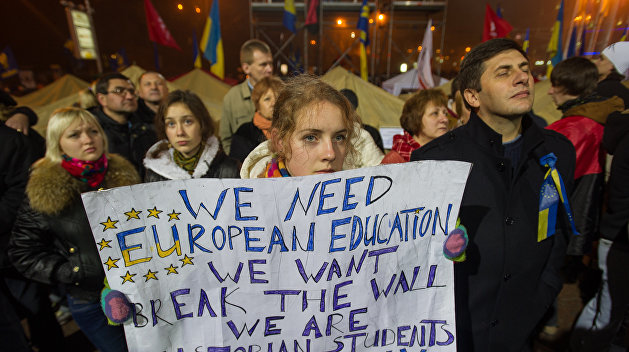 WE NEED
EUROPEAN EDUCATION
WE WANT
BREAK THE WALL
WE ARE
ISTORIAN STUDENTS